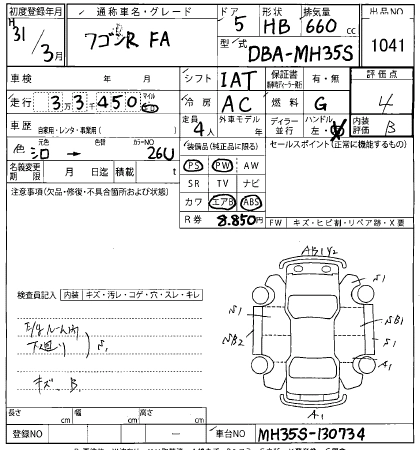 初度登録年月 通称車名・グレード ドア 形状 排気量 出品NO
H31/3月 ワゴンR FA 5 HB 660cc
型式 DBA-MH35S 1041
車検 年 月 シフト IAT 保証書 有・無 評価点
走行 3万3千450 マイル km 冷房 AC 燃料 G 4
車歴 自家用・レンタ・事業用( ) 定員 4人 外車モデル 年 ディーラー 並行 ハンドル 左・右 内装評価 B
色 元色 シロ → 色替 カラーNO 26U 装備品(純正品に限る) セールスポイント(正常に機能するもの)
名義変更期限 月 日迄 積載 t PS PW AW
注意事項(欠品・修復・不具合箇所および状態) SR TV ナビ
カワ エアB ABS
R券 8.850円 FW キズ・ヒビ割・リペア跡・X要
AB1Y2
検査員記入 内装 キズ・汚レ・コゲ・穴・スレ・キレ
S1
S1
E/gルーム内
下廻り S1
SB1
SB2
S1
A1
キズ B.
A1
長さ cm 幅 cm 高さ cm
登録NO － 車台NO MH35S-130734